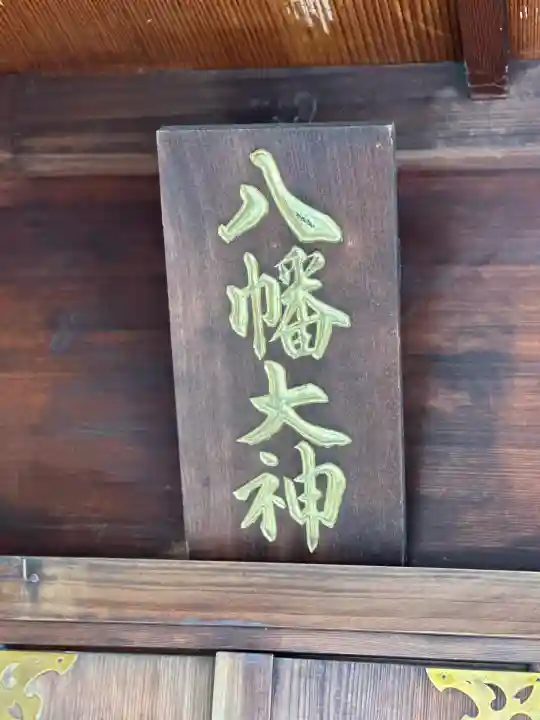 八幡大神